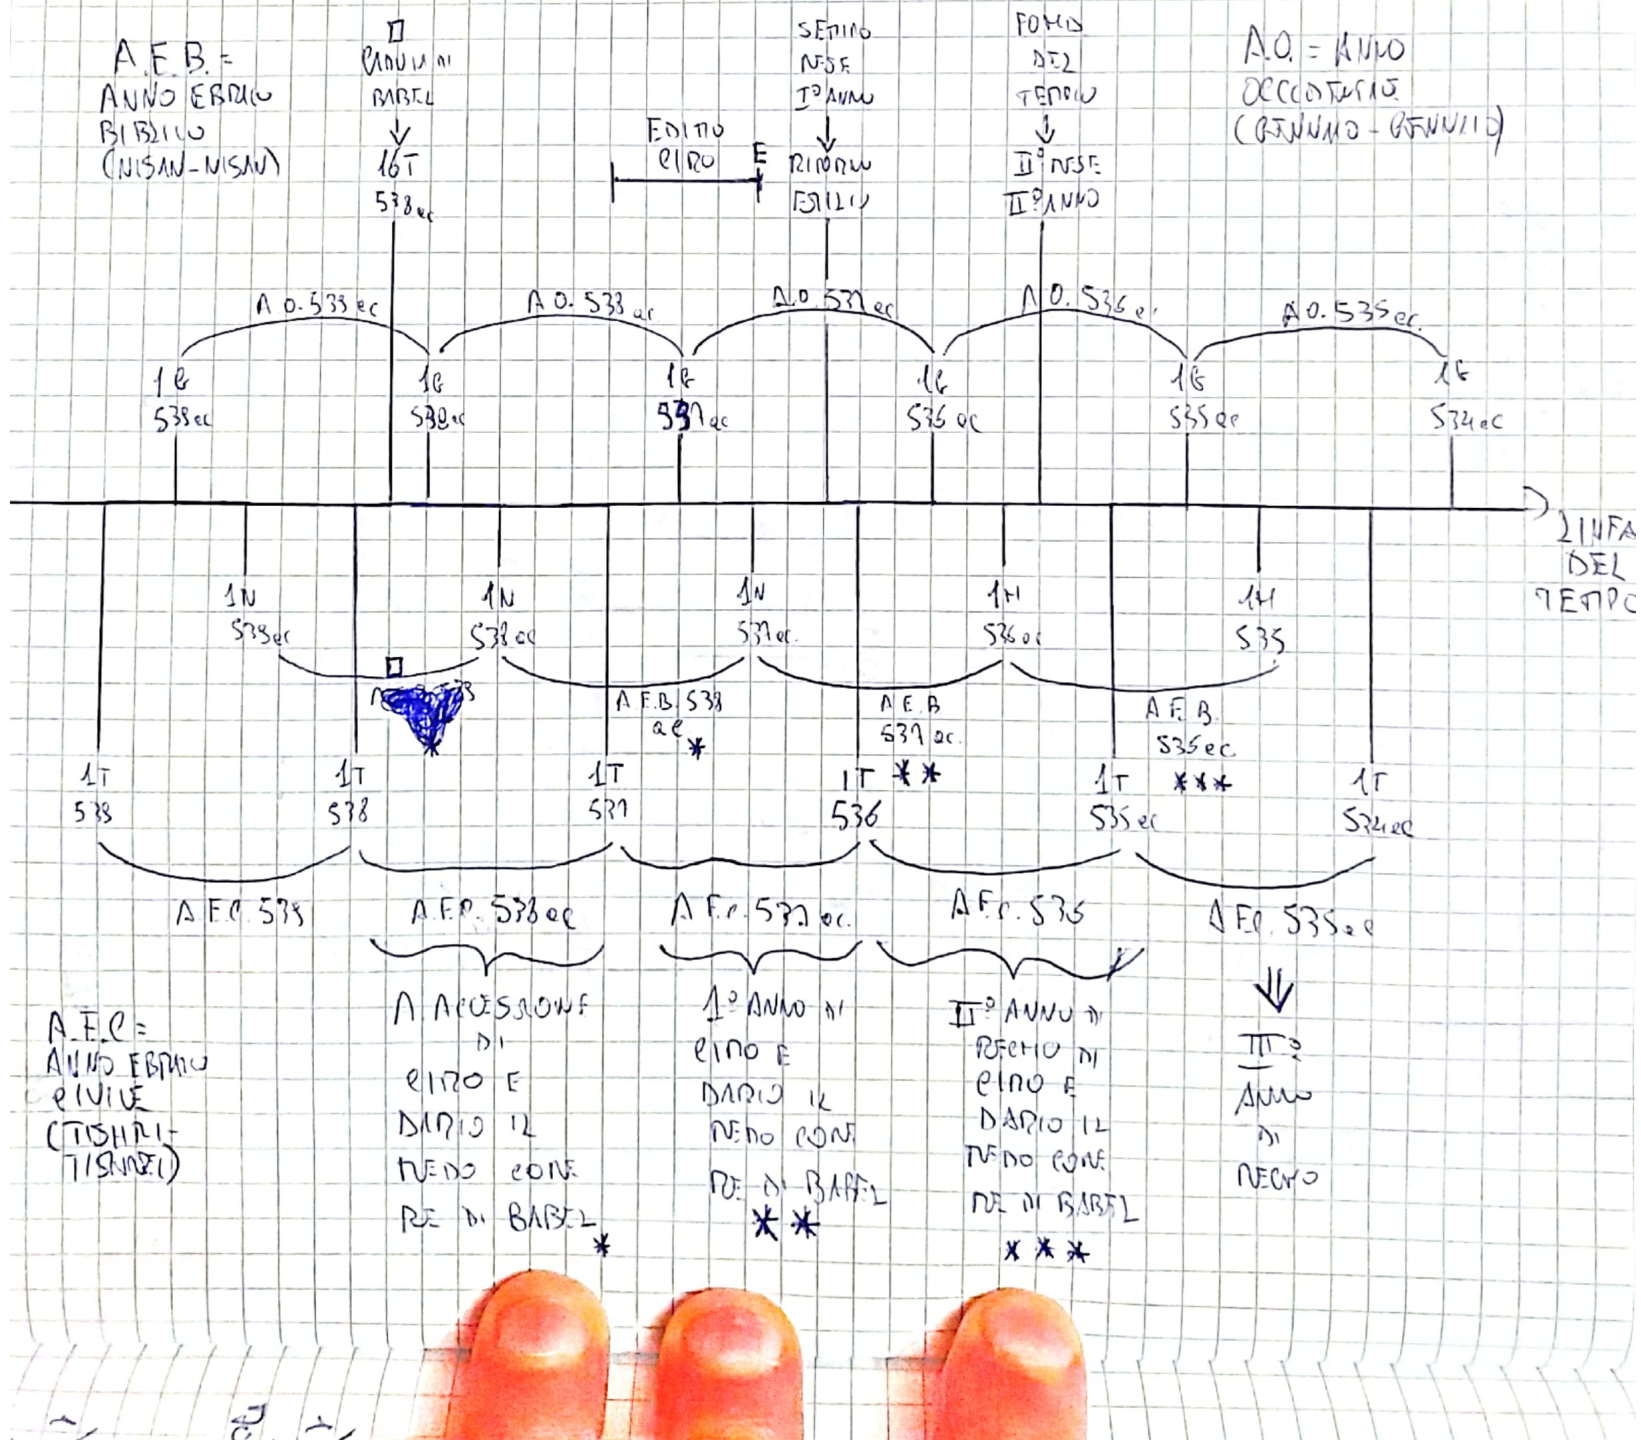 A.E.B. =
ANNO EBRAICO
BIBLICO
(NISAN-NISAN)
CADUTA DI
BABEL
16T
538 ac
EDITTO
CIRO
E
SETTIMO
MESE
I° ANNO
RITORNO
ESILIO
FOND
DEL
TEMPIO
II° MESE
II° ANNO
A.O. = ANNO
OCCIDENTALE
(GENNAIO - GENNAIO)
A.O. 539 ac
A.O. 538 ac
A.O. 537 ac
A.O. 536 a.
A.O. 535 ac.
1G
539 ac
1G
538 ac
1G
537 ac
1G
536 ac
1G
535 ac
1G
534 ac
LINEA
DEL
TEMPO
1N
539 ac
1N
538 ac
1N
537 ac.
1N
536 ac
1N
535
*
A.E.B. 538
ac
*
A.E.B
537 ac.
**
A.E.B.
536 ac
***
1T
539
1T
538
1T
537
1T
536
1T
535 ac
1T
534 ac
A.E.C. 539
A.E.C. 538 ac
A.E.C. 537 ac.
A.E.C. 536
A.E.C. 535 ac
A.E.C =
ANNO EBRAICO
CIVILE
(TISHRI-
TISHREI)
A. ACCESSIONE
DI
CIRO E
DARIO IL
MEDO COME
RE DI BABEL
*
1° ANNO DI
CIRO E
DARIO IL
MEDO COME
RE DI BABEL
**
II° ANNO DI
REGNO DI
CIRO E
DARIO IL
MEDO COME
RE DI BABEL
***
III°
ANNO
DI
REGNO